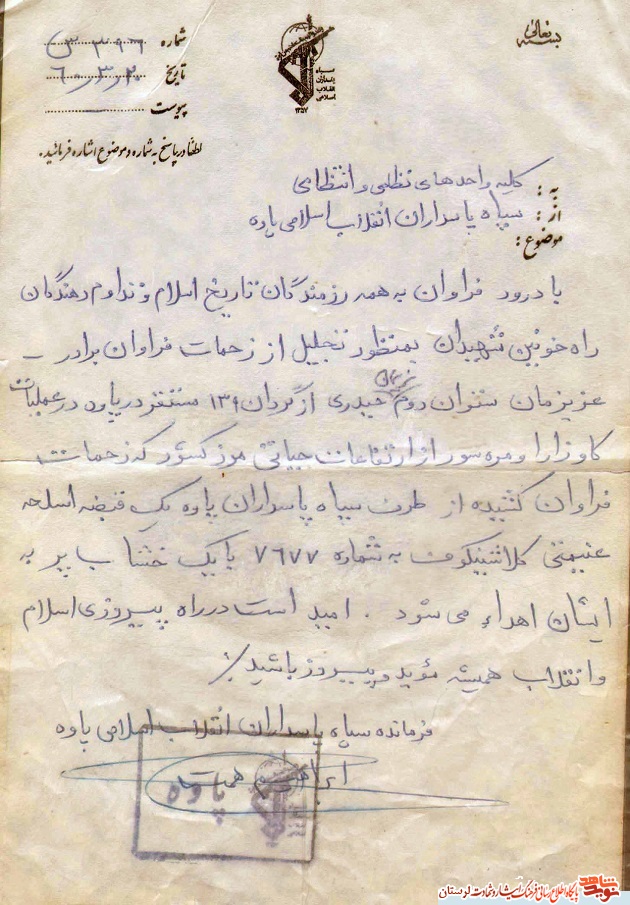 بسمه تعالی
سپاه پاسداران انقلاب اسلامی
۱۳۵۷
شماره
تاریخ ۶۰/۳/۲۰
پیوست
لطفاً در پاسخ به شماره و موضوع اشاره فرمائید.
به: کلیه واحدهای نظامی و انتظامی
از: سپاه پاسداران انقلاب اسلامی پاوه
موضوع:
با درود فراوان به همه رزمندگان تاریخ اسلام و تداوم دهندگان
راه خونین شهیدان بمنظور تجلیل از زحمات فراوان برادر
عزیزمان ستوان دوم حیدری از گردان ۱۳۹ مستقر در پاوه در عملیات
کاوزارا و مره سور از ارتفاعات حیاتی مرز کشور که زحمات
فراوان کشیده از طرف سپاه پاسداران پاوه یک قبضه اسلحه
غنیمتی کلاشینکوف به شماره ۷۶۷۷ با یک خشاب پر به
ایشان اهداء می شود . امید است در راه پیروزی اسلام
و انقلاب همیشه مؤید و پیروز باشید/.
فرمانده سپاه پاسداران انقلاب اسلامی پاوه
ابراهیم همت
پاوه
نوید شاهد
پایگاه اطلاع رسانی فرهنگ ایثار و شهادت لرستان